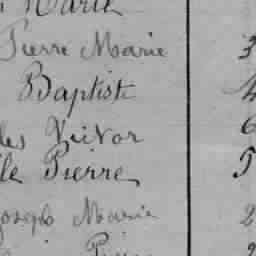 Marie
Pierre Marie 3
Baptiste 4
les Victor 6
le Pierre 5
Joseph Marie 2